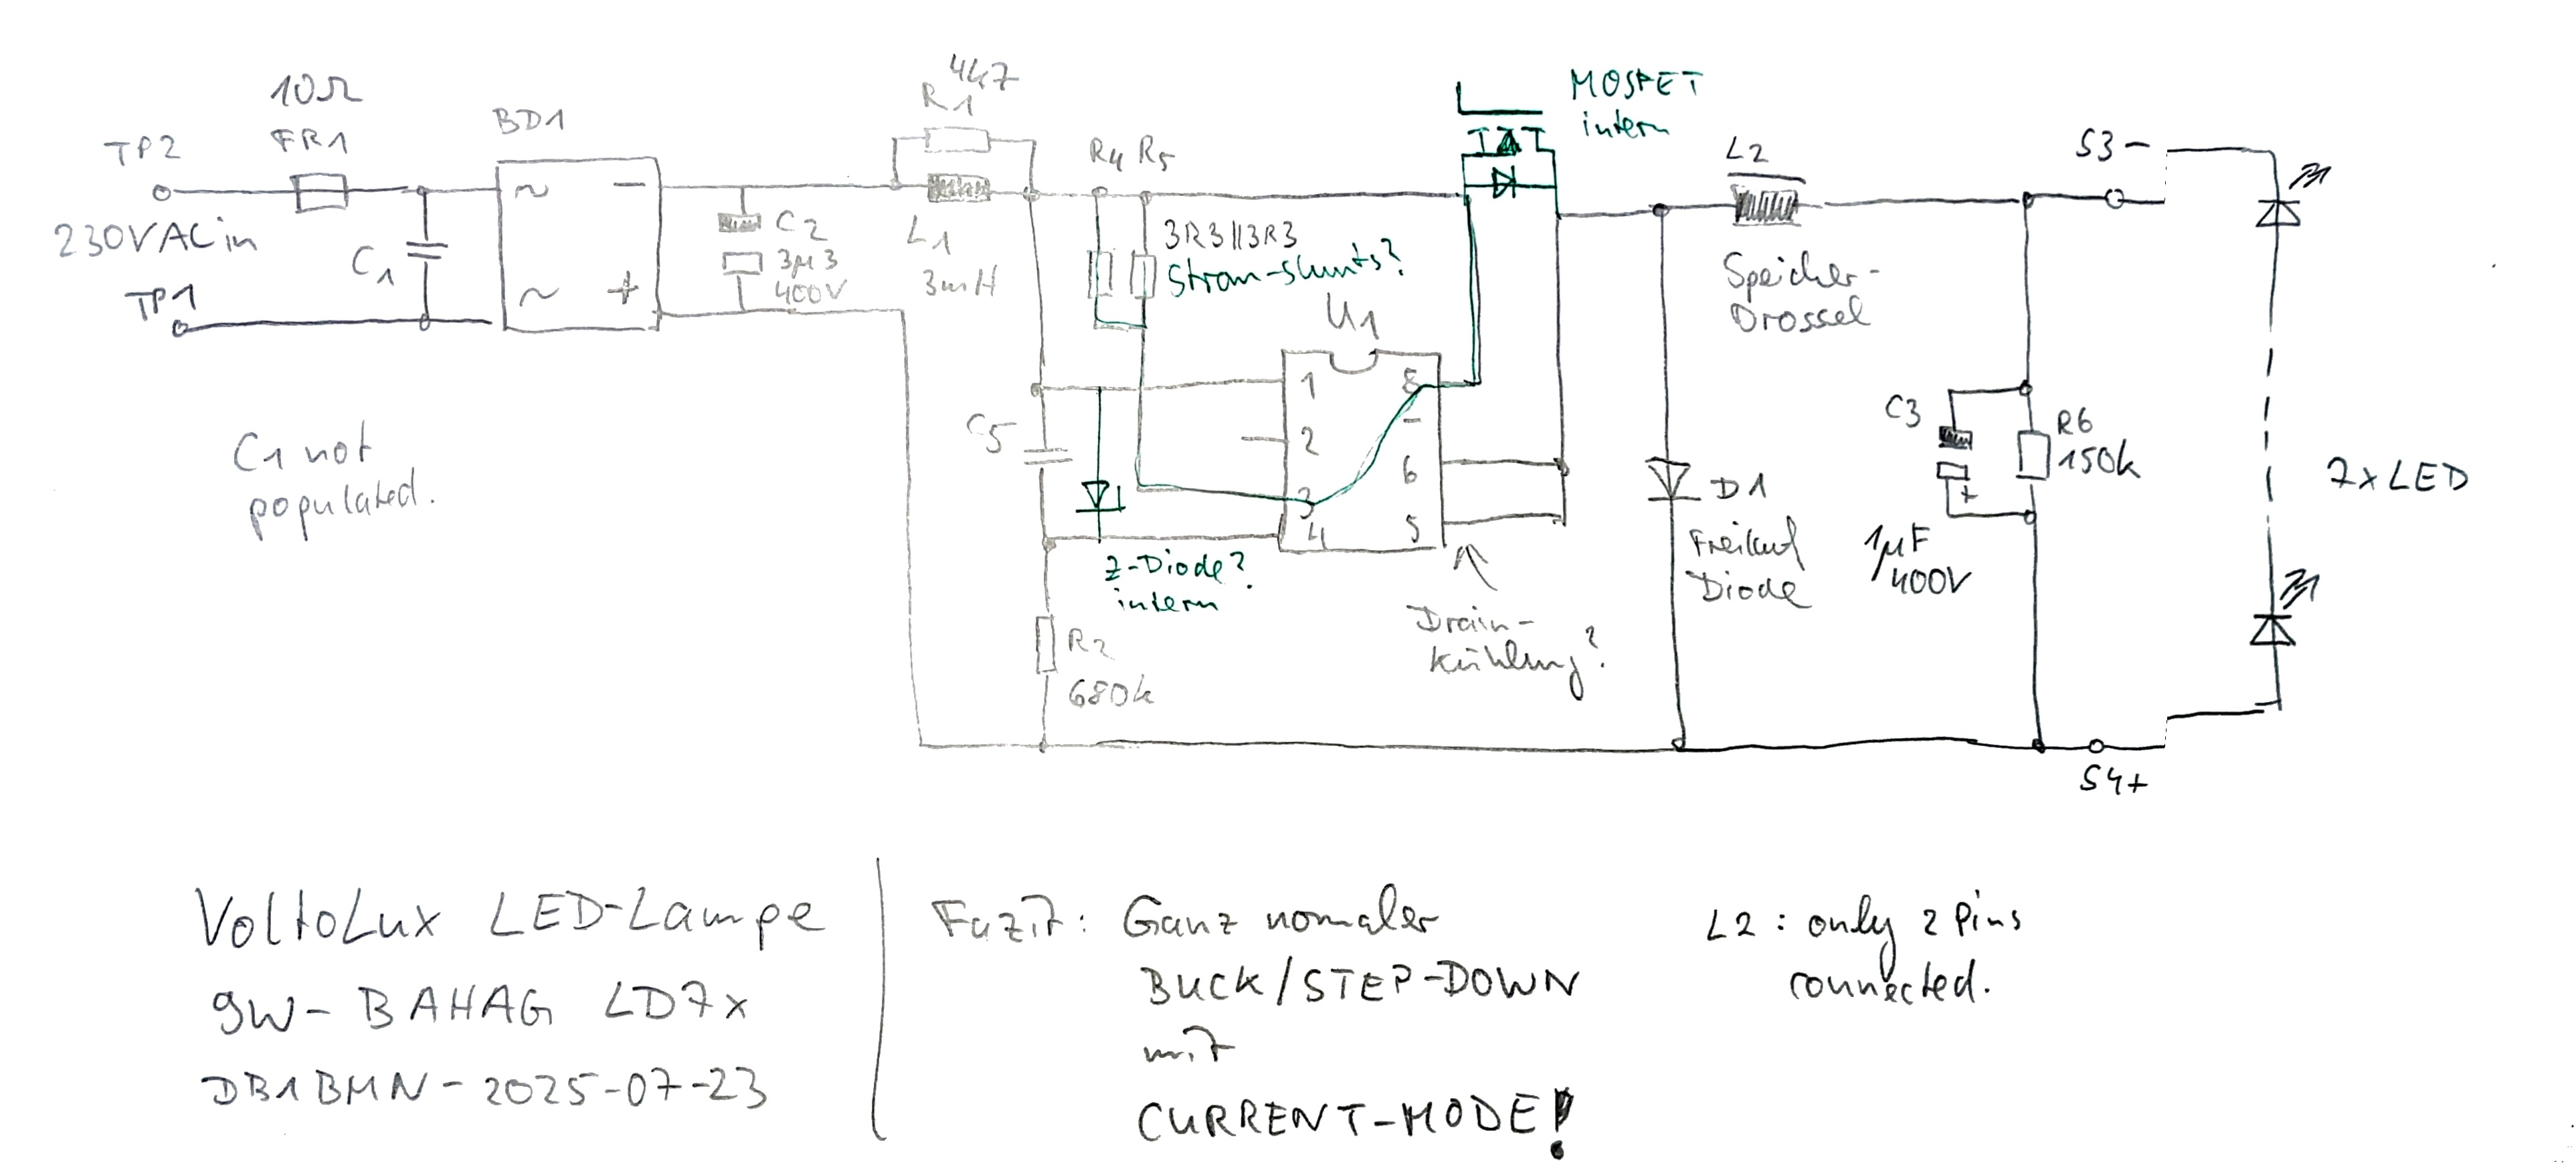 10Ω
FR1
TP2
230VAC in
TP1
C1
BD1
~ −
~ +
C2
3µ3
400V
4k7
R1
L1
3mH
R4 R5
3R3||3R3
Strom-shunts?
U1
1 8
2 −
3 6
4 5
C5
Z-Diode?
intern
R2
680k
MOSFET
intern
Drain-
Kühlung?
L2
Speicher-
Drossel
D1
Freilauf
Diode
S3 −
C3
+
1µF
/400V
R6
150k
7x LED
S4+
C1 not
populated.
VoltoLux LED-Lampe
9W- BAHAG LD7x
DB1BMN - 2025-07-23
Fazit: Ganz normaler
BUCK/STEP-DOWN
mit
CURRENT-MODE!
L2: only 2 Pins
connected.